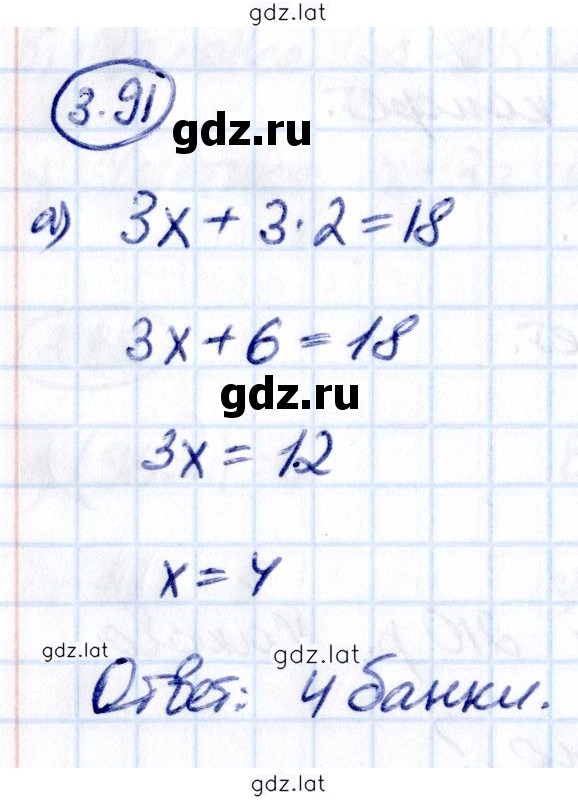 gdz.lat
3.91
gdz.ru
а) 3x + 3·2 = 18
3x + 6 = 18
gdz.ru
3x = 12
x = 4
gdz.lat
gdz.lat
Ответ: 4 банки.
gdz.lat